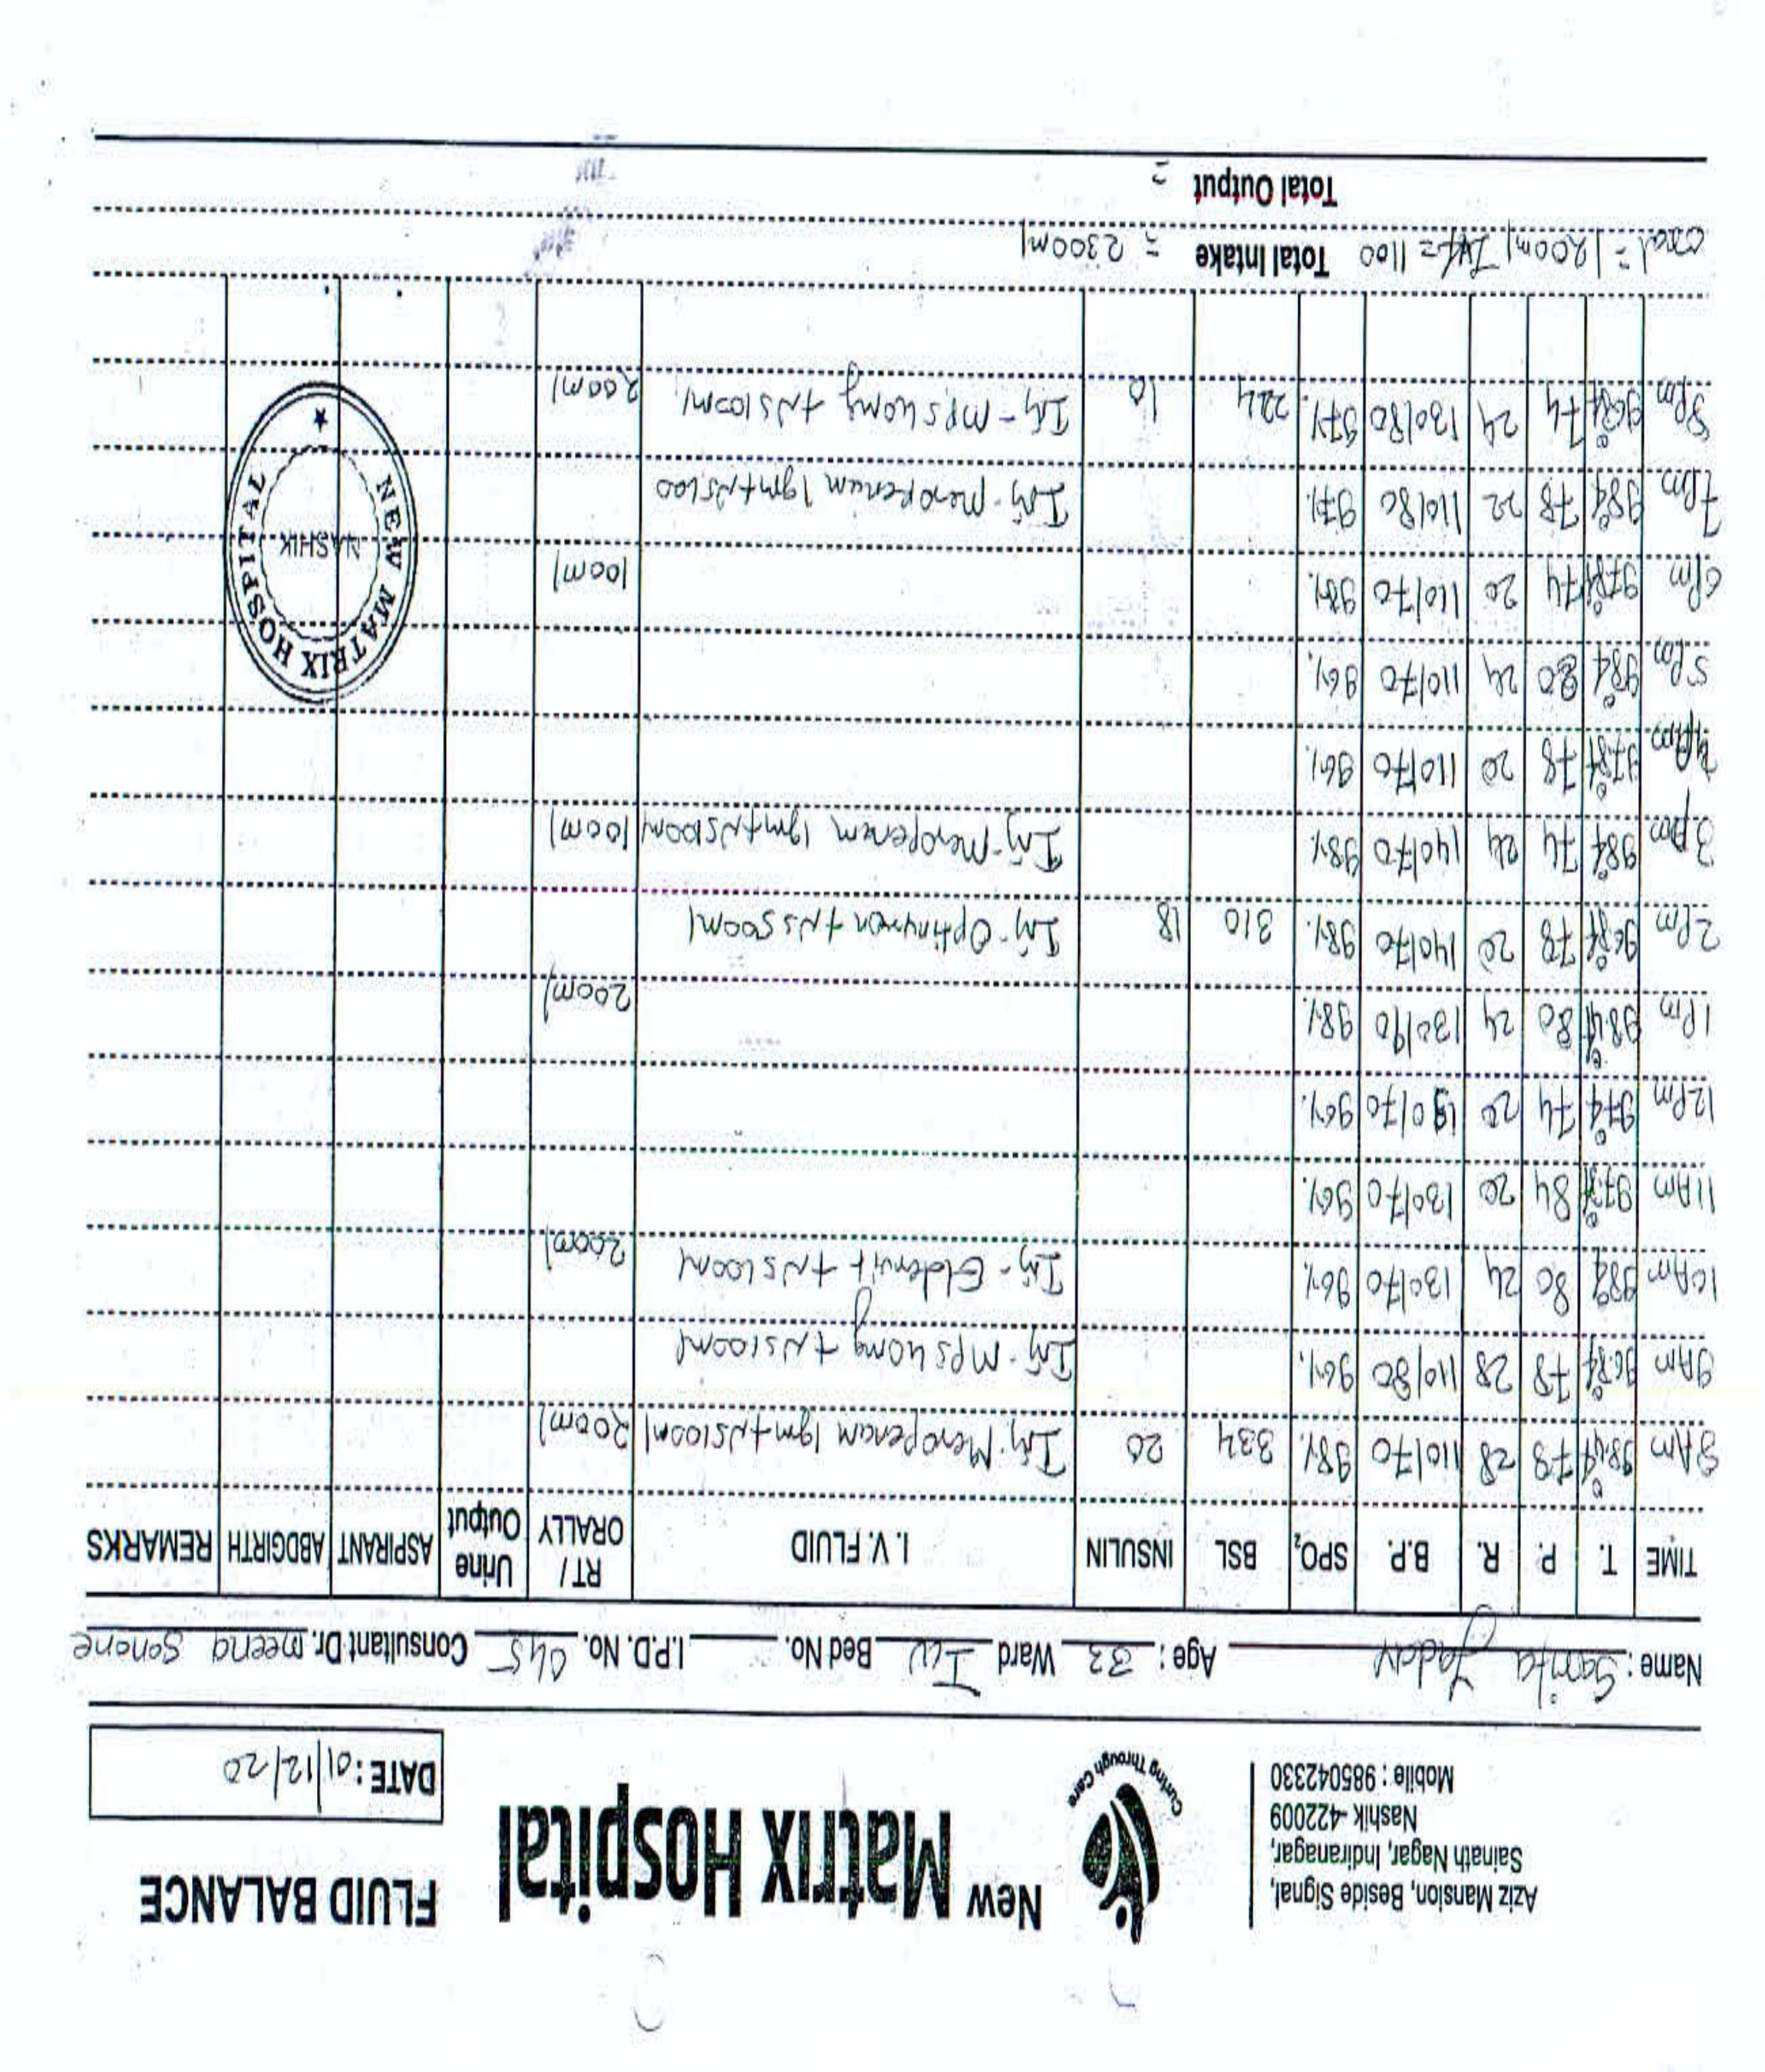 Aziz Mansion, Beside Signal,
Sainath Nagar, Indiranagar,
Nashik -422009
Mobile : 985042330
Curing Through Care
New Matrix Hospital
FLUID BALANCE
DATE : 01/12/20
Name : Sarita Jadav Age : 33 Ward ICU Bed No. I.P.D. No. 045 Consultant Dr. meena Sonone
TIME T. P. R. B.P. SPO2 BSL INSULIN I. V. FLUID RT / ORALLY Urine Output ASPIRANT ABDGIRTH REMARKS
8Am 98.4 78 28 110/70 98% 334 20 Inj. Meropenam 1gm+NS100ml 200ml
9Am 96.8 78 28 110/80 96% Inj- MPS 40mg +NS100ml
10Am 80 24 130/70 96% Inj- Eldervit +NS100ml 200ml
11Am 84 20 130/70 96%
12Pm 97.4 74 20 96%
1Pm 98.4 80 24 130/90 98% 200ml
2Pm 78 20 140/70 98% 310 18 Inj- Optinuron +NS 500ml
3Pm 98.4 74 24 140/70 98% Inj- Meropenam 1gm+NS100ml 100ml
4Pm 78 20 110/70 96%
5Pm 98.4 80 24 110/70 96%
6Pm 74 20 110/70 98% 100ml
7Pm 98.4 78 22 110/80 97% Inj- Meropenam 1gm+NS100
8Pm 74 24 130/80 97% 224 10 Inj- MPS 40mg +NS100ml 200ml
oral = 1200ml Ivf = 1100 Total Intake = 2300ml
Total Output =
NEW MATRIX HOSPITAL
NASHIK